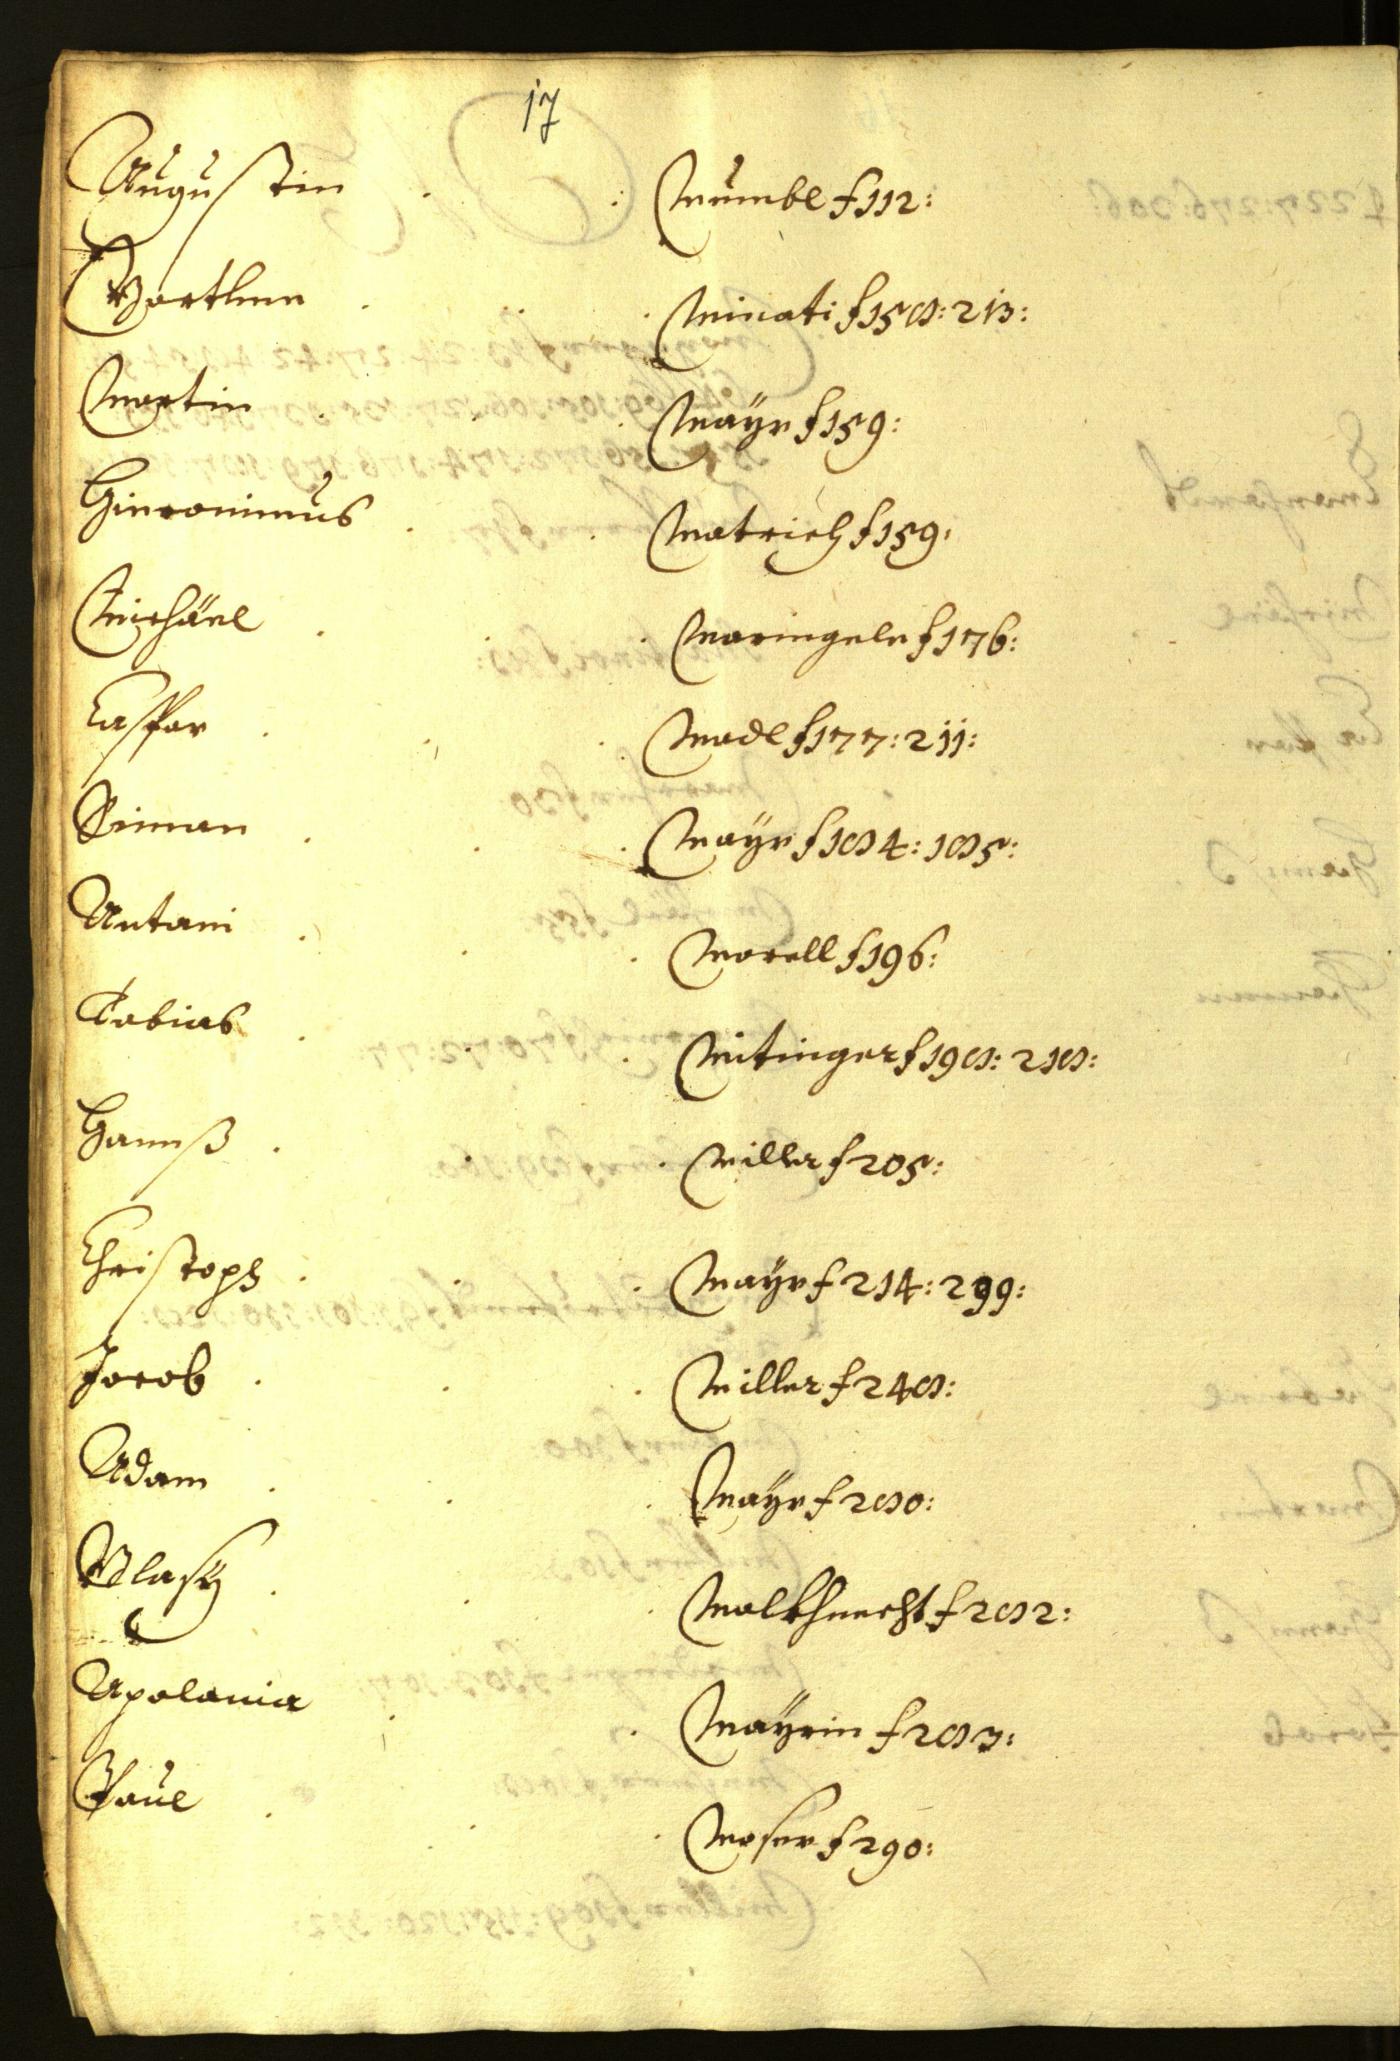 17
Augustin . : Mumbl f 112:
Barthlme . . . Minati f 158: 213:
Martin . . Mayr f 159:
Hieronimus . . Matrich f 159:
Michäel . . . Maringele f 176:
Casspar . . . Madl f 177: 211:
Siman . . . Mayr f 184: 185:
Antani . . . Morell f 196:
Tobias . . . Mitinger f 198: 218:
Hannß . . . Miller f 205:
Christoph . . . Mayr f 214: 299:
Jacob . . . Miller f 248:
Adam . . . Mayr f 280:
Blasÿ . . . Malkhnecht f 282:
Apolania . . Mayrin f 283:
Paul . . . Moser f 290: